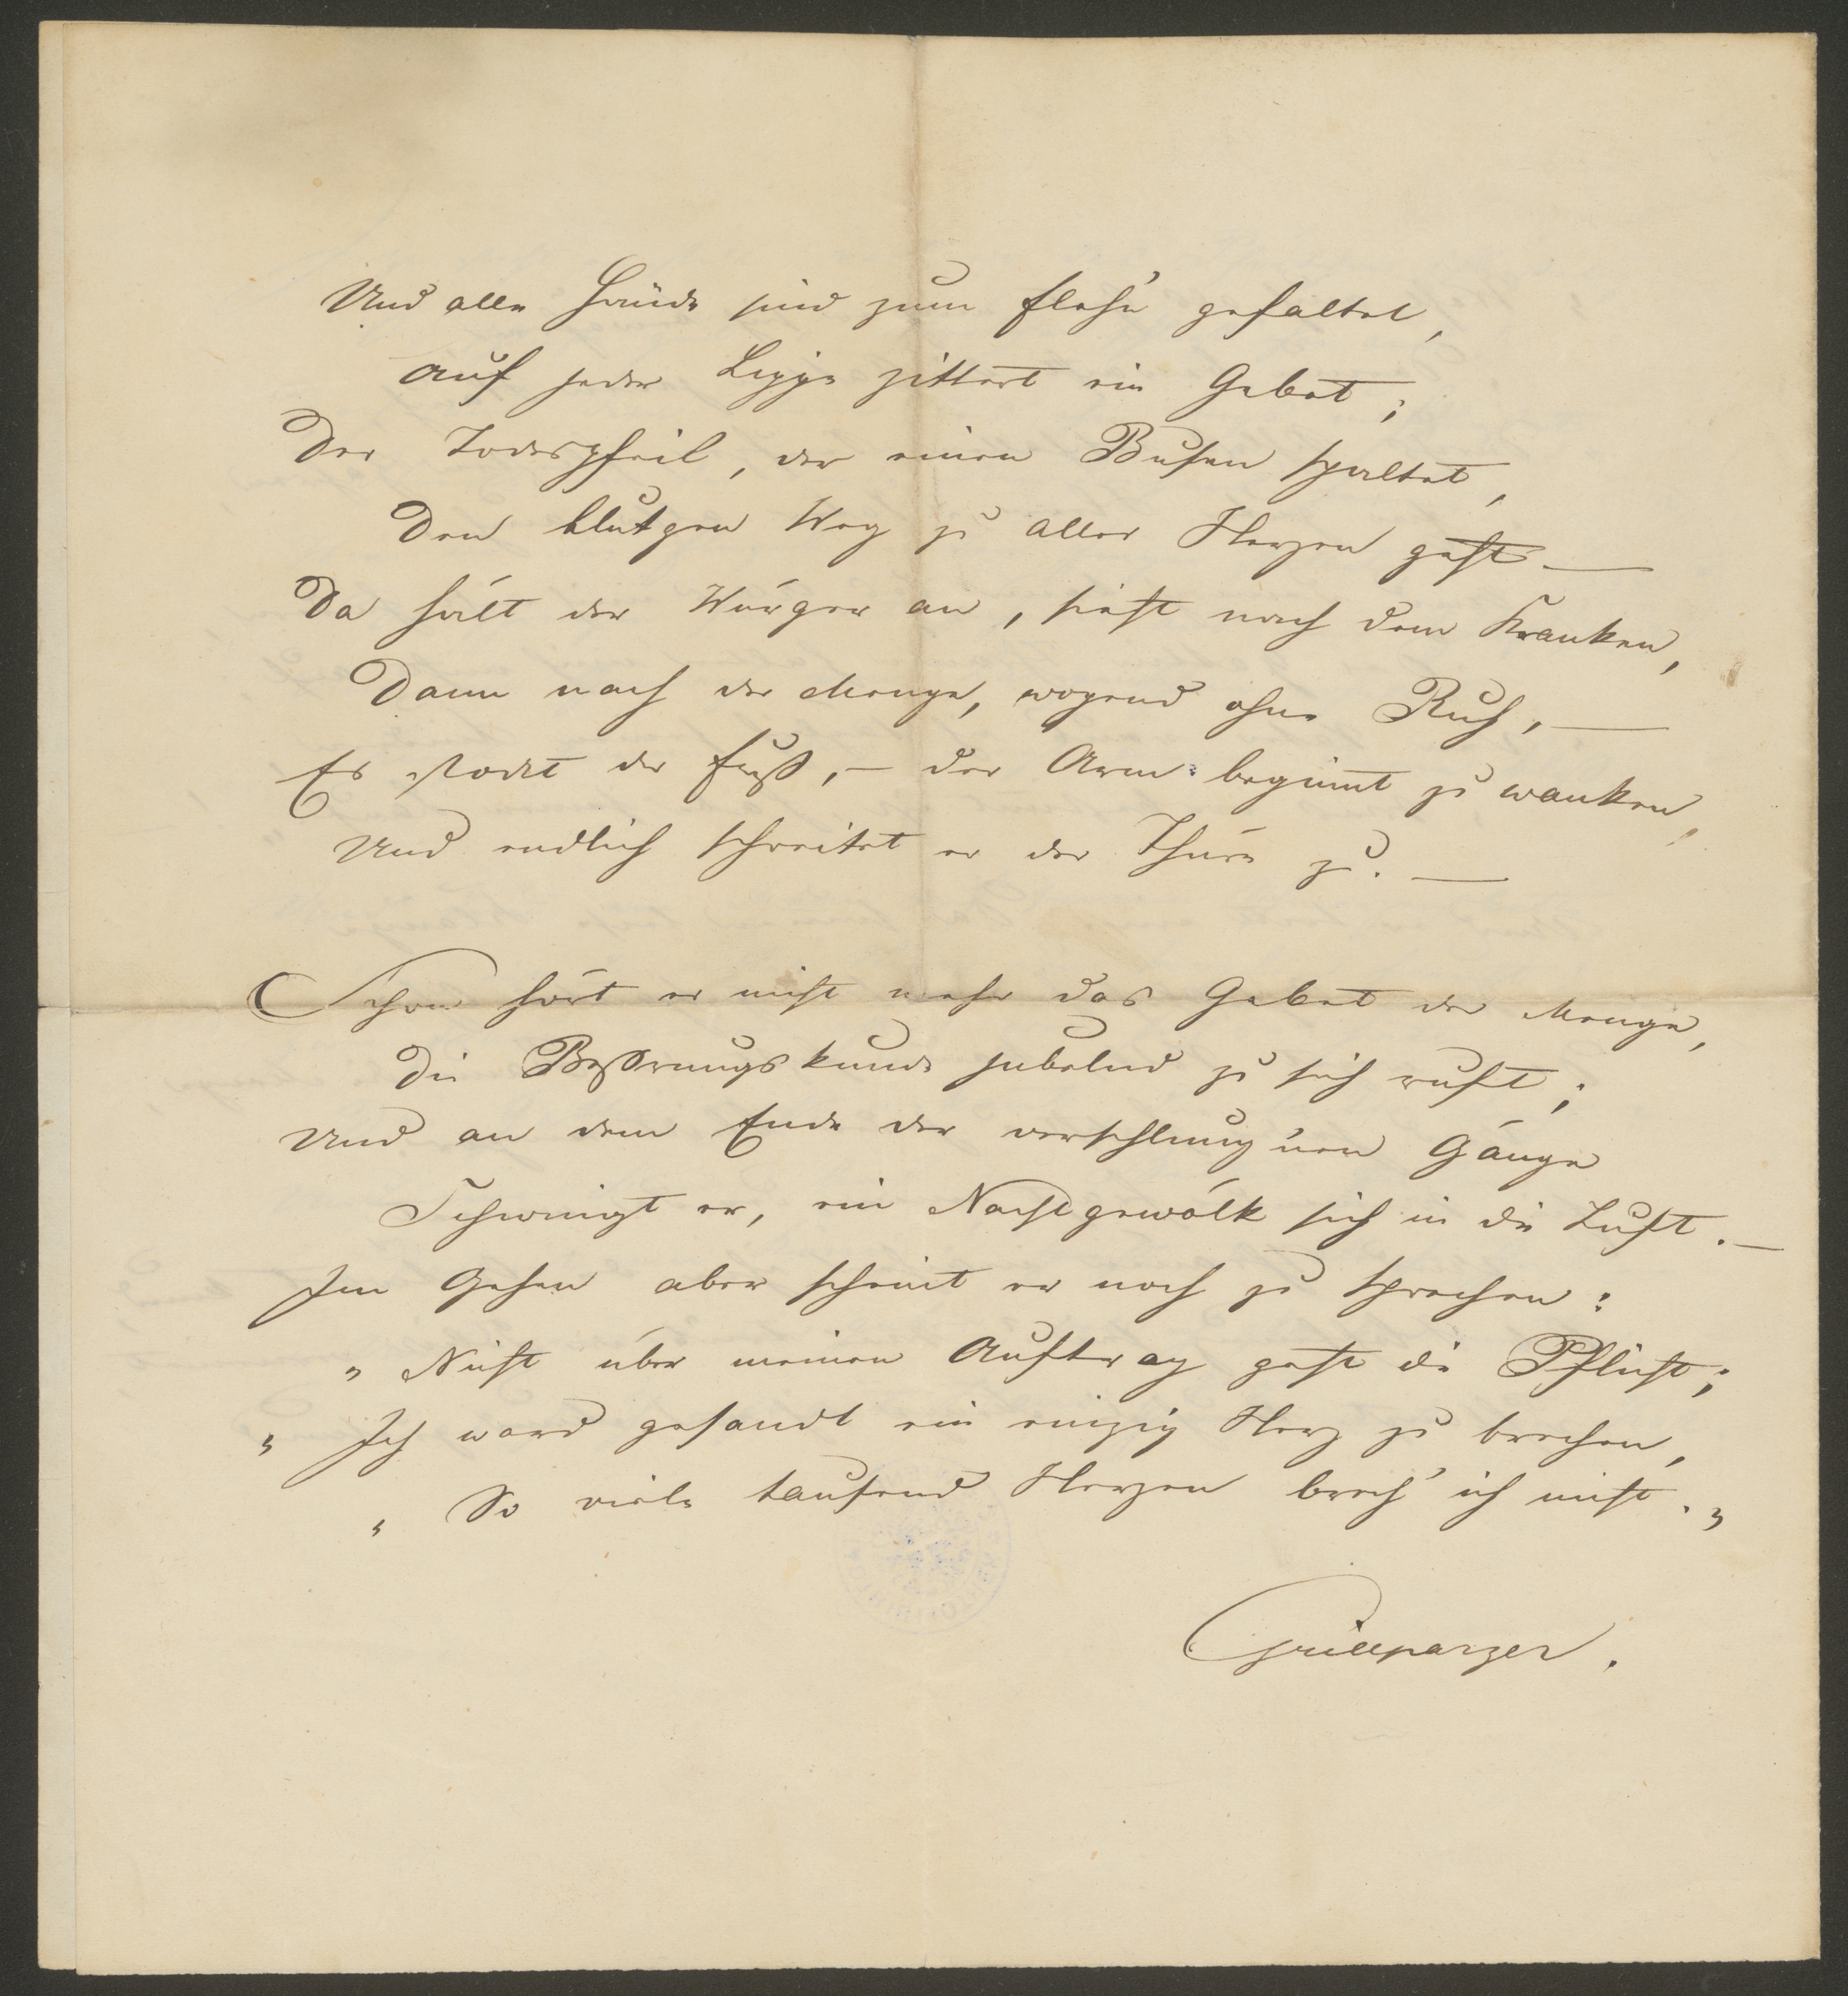 Und alle Hände sind zum Flehn gefaltet,
Auf jeder Lippe zittert ein Gebet;
Der Todespfeil, der einen Busen spaltet,
Den blutgen Weg zu aller Herzen geht —
Da hält der Würger an, sieht nach dem Kranken,
Dann nach der Menge, wogend ohne Ruh, —
Es stockt der Fuß, — der Arm beginnt zu wanken,
Und endlich schreitet er der Thüre zu. —
Schon hört er nicht mehr das Gebet der Menge,
Die Beßrungskunde jubelnd zu sich ruft;
Und an dem Ende der verschlung'nen Gänge
Schwingt er, ein Nachtgewölk sich in die Luft. —
Im Gehen aber scheint er noch zu sprechen:
„ Nicht über meinen Auftrag geht die Pflicht;
„ Ich ward gesandt ein einzig Herz zu brechen,
„ So viele tausend Herzen brech' ich nicht. „
Grillparzer.